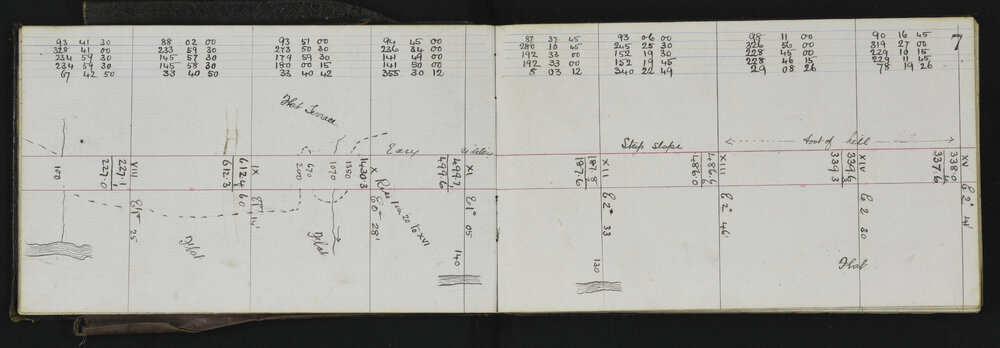 93 41 30
328 41 00
234 59 30
234 59 30
67 42 50
88 02 00
233 59 30
145 57 30
145 58 30
33 40 50
93 51 00
273 50 30
179 59 30
180 00 15
33 40 42
94 45 00
236 34 00
141 49 00
141 50 00
355 30 12
87 37 45
280 10 45
192 33 00
192 33 00
5 03 12
93 06 00
245 25 30
152 19 30
152 19 45
340 22 49
98 11 00
326 56 00
228 45 00
228 46 15
29 08 26
90 16 45
319 27 00
229 10 15
229 11 45
78 19 26
7
Flat Terrace
Easy
Steep slope
foot of hill
100
VIII
227.1
227.0
E 1° 25
IX
612.4
612.3
60
E 1° 14'
670
200
1070
1350
X
1430.3
E 0° 28'
Rise 1 in 20 to XVI
XI
499.7
499.6
E 1° 05
140
XII
187.8
187.6
E 2° 33
130
XIII
486.6
486.0
E 2° 46'
XIV
339.6
339.3
E 2 30
XV
338.0
337.6
E 2° 41'
Flat
Flat
Flat